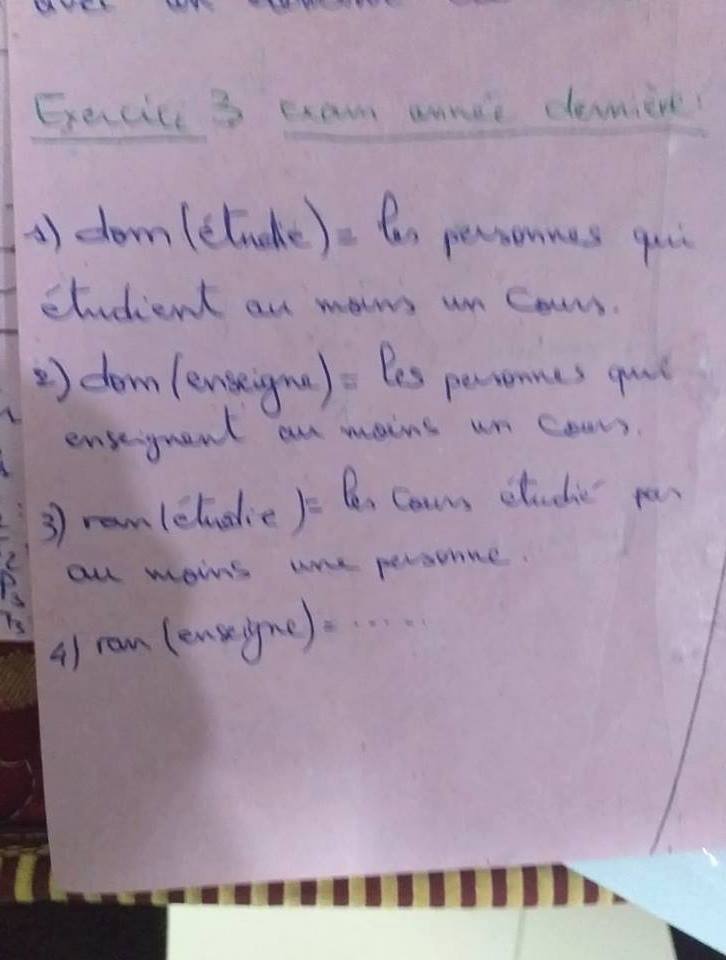 avec un
Exercice 3 exam année dernière
1) dom(étudie) = les personnes qui
étudient au moins un cours.
2) dom(enseigne) = les personnes qui
enseignent au moins un cours.
3) ran(étudie) = les cours étudié par
au moins une personne.
4) ran(enseigne) = ......